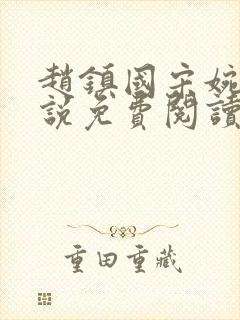 趙鎮國宋婉
說免費閱讀
重田重藏